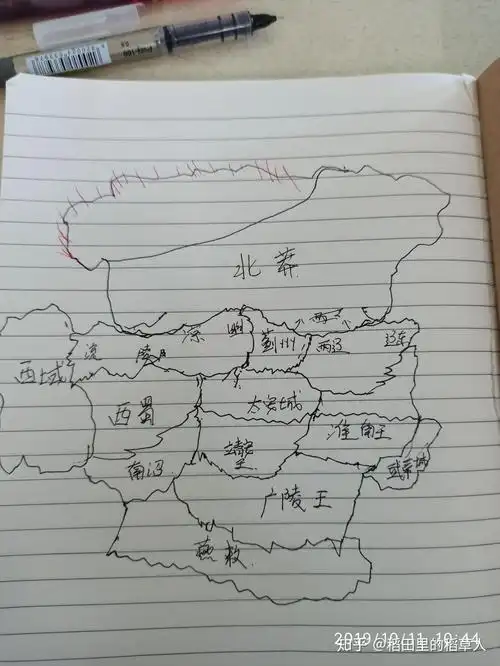 北莽
西
凉
蓟州
两辽
辽东
流
西域
西蜀
太安城
淮南王
靖安王
武帝城
南诏
广陵王
燕敕
2019/10/11 10:44
知乎 @稻田里的稻草人